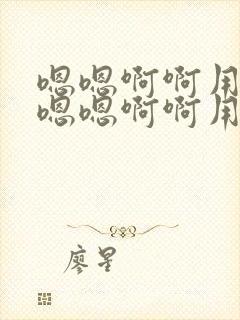 嗯嗯啊啊用
嗯嗯啊啊用
廖星